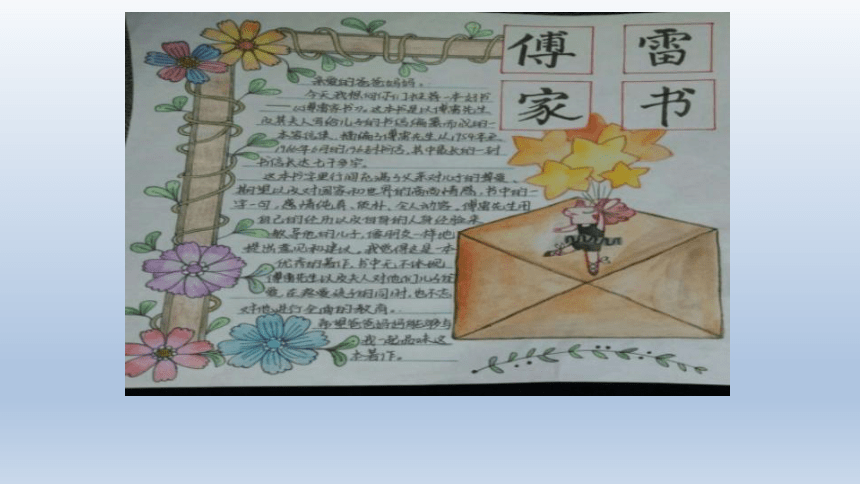 傅雷
家书
亲爱的爸爸妈妈：
今天我想向你们推荐一本好书
——《傅雷家书》。这本书是以傅雷先生
及其夫人写给儿子的书信编纂而成的一
本家信集，摘编了傅雷先生从1954年至
1966年6月的196封书信，其中最长的一封
书信长达七千多字。
这本书字里行间充满了父亲对儿子的挚爱、
期望以及对国家和世界的高尚情感，书中的一
字一句，感情纯真、质朴，令人动容。傅雷先生用
自己的经历以及自身的人身经验来
教导他的儿子，像朋友一样地
提出意见和建议。我觉得这是一本
优秀的著作，书中无不体现
傅雷先生以及夫人对他们儿子的
爱，在疼爱孩子的同时，也不忘
对他进行全面的教育。
希望爸爸妈妈能够与
我一起品味这
本著作。